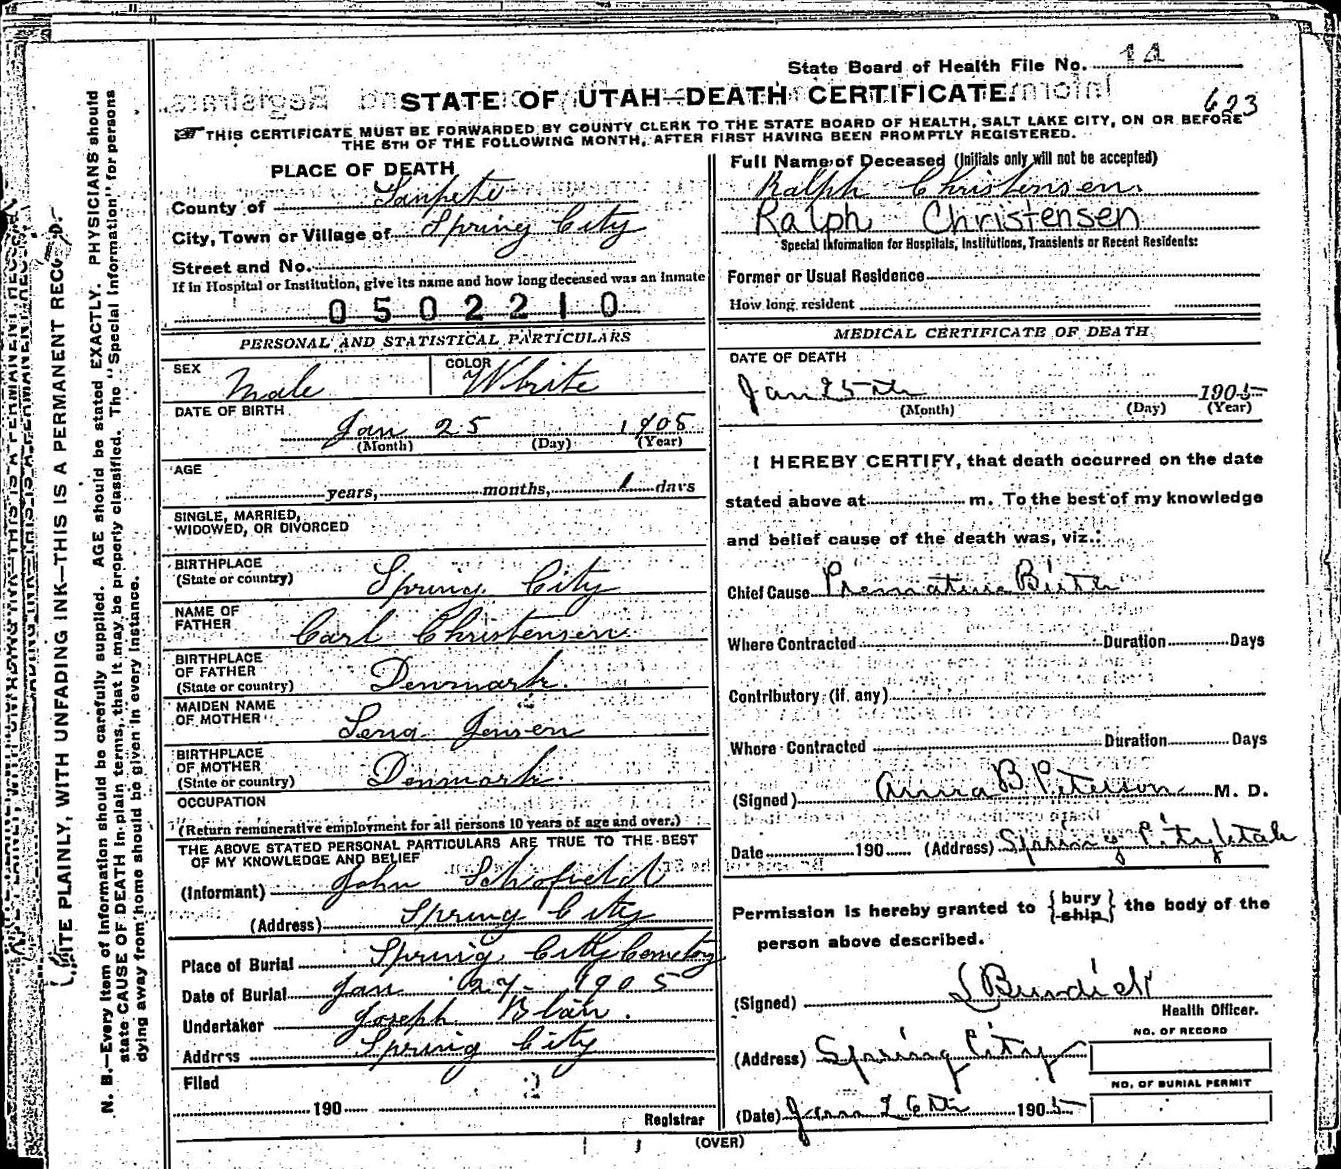 State Board of Health File No. 14
STATE OF UTAH—DEATH CERTIFICATE.
623
THIS CERTIFICATE MUST BE FORWARDED BY COUNTY CLERK TO THE STATE BOARD OF HEALTH, SALT LAKE CITY, ON OR BEFORE
THE 5TH OF THE FOLLOWING MONTH, AFTER FIRST HAVING BEEN PROMPTLY REGISTERED.
PLACE OF DEATH
County of Sanpete
City, Town or Village of Spring City
Street and No.
If in Hospital or Institution, give its name and how long deceased was an inmate
0502210
PERSONAL AND STATISTICAL PARTICULARS
SEX Male COLOR White
DATE OF BIRTH
Jan 25 1905
(Month) (Day) (Year)
AGE
years, months, 1 days
SINGLE, MARRIED,
WIDOWED, OR DIVORCED
BIRTHPLACE
(State or country) Spring City
NAME OF
FATHER Carl Christensen
BIRTHPLACE
OF FATHER
(State or country) Denmark
MAIDEN NAME
OF MOTHER Lena Jensen
BIRTHPLACE
OF MOTHER
(State or country) Denmark
OCCUPATION
(Return remunerative employment for all persons 10 years of age and over.)
THE ABOVE STATED PERSONAL PARTICULARS ARE TRUE TO THE BEST
OF MY KNOWLEDGE AND BELIEF
(Informant) John Schofield
(Address) Spring City
Place of Burial Spring City Cemetery
Date of Burial Jan 27 1905
Undertaker Joseph Blain.
Address Spring City
Filed
190
Registrar
Full Name of Deceased (Initials only will not be accepted)
Ralph Christensen
Ralph Christensen
Special Information for Hospitals, Institutions, Transients or Recent Residents:
Former or Usual Residence
How long resident
MEDICAL CERTIFICATE OF DEATH
DATE OF DEATH
Jan 25th 1905
(Month) (Day) (Year)
I HEREBY CERTIFY, that death occurred on the date
stated above at m. To the best of my knowledge
and belief cause of the death was, viz.:
Chief Cause Premature Birth
Where Contracted Duration Days
Contributory (if any)
Where Contracted Duration Days
(Signed) Anna B. Peterson M. D.
Date 190 (Address) Spring City Utah
Permission is hereby granted to {bury
ship} the body of the
person above described.
(Signed) Burdick
Health Officer.
NO. OF RECORD
(Address) Spring City
NO. OF BURIAL PERMIT
(Date) Jan 26th 1905
(OVER)
WRITE PLAINLY, WITH UNFADING INK—THIS IS A PERMANENT RECORD.
N. B.—Every item of information should be carefully supplied. AGE should be stated EXACTLY. PHYSICIANS should
state CAUSE OF DEATH in plain terms, that it may be properly classified. The "Special Information" for persons
dying away from home should be given in every instance.